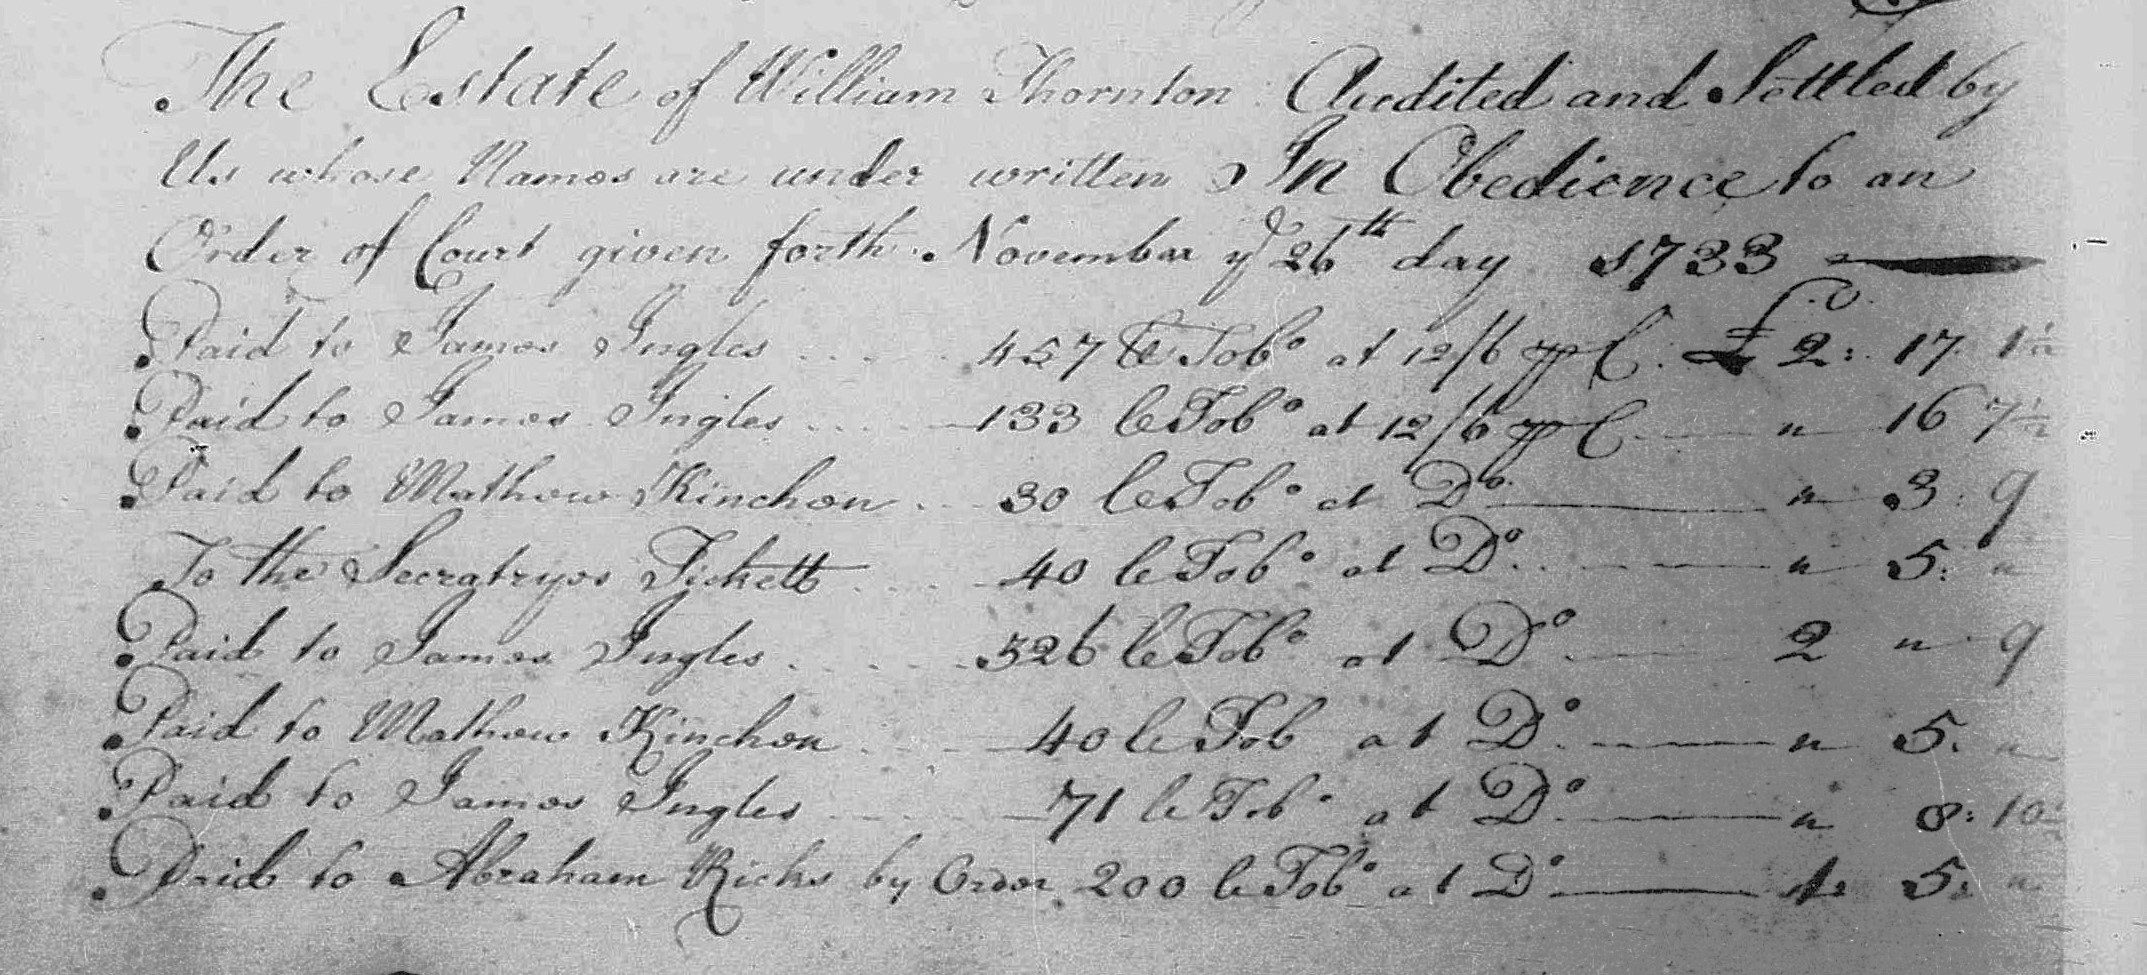 The Estate of William Thornton Audited and Settled by
Us whose Names are under written In Obedience to an
Order of Court given forth November ye 26th day 1733
Paid to James Ingles .... 457 lb Tobo at 12/6 pp C. £ 2: 17. 1½
Paid to James Ingles .... 133 lb Tobo at 12/6 pp C. — " — 16 7½
Paid to Mathew Kinchen .. 30 lb Tobo at Do. — " — 3: 9
To the Secratryes Tickett .... 40 lb Tobo at Do. — " — 5: "
Paid to James Ingles ..... 326 lb Tobo at Do — 2 " 9
Paid to Mathew Kinchen .... 40 lb Tob at Do. — " 5. "
Paid to James Ingles .... 71 lb Tobo at Do — " 8: 10½
Paid to Abraham Ricks by Order 200 lb Tobo at Do — 1: 5: "